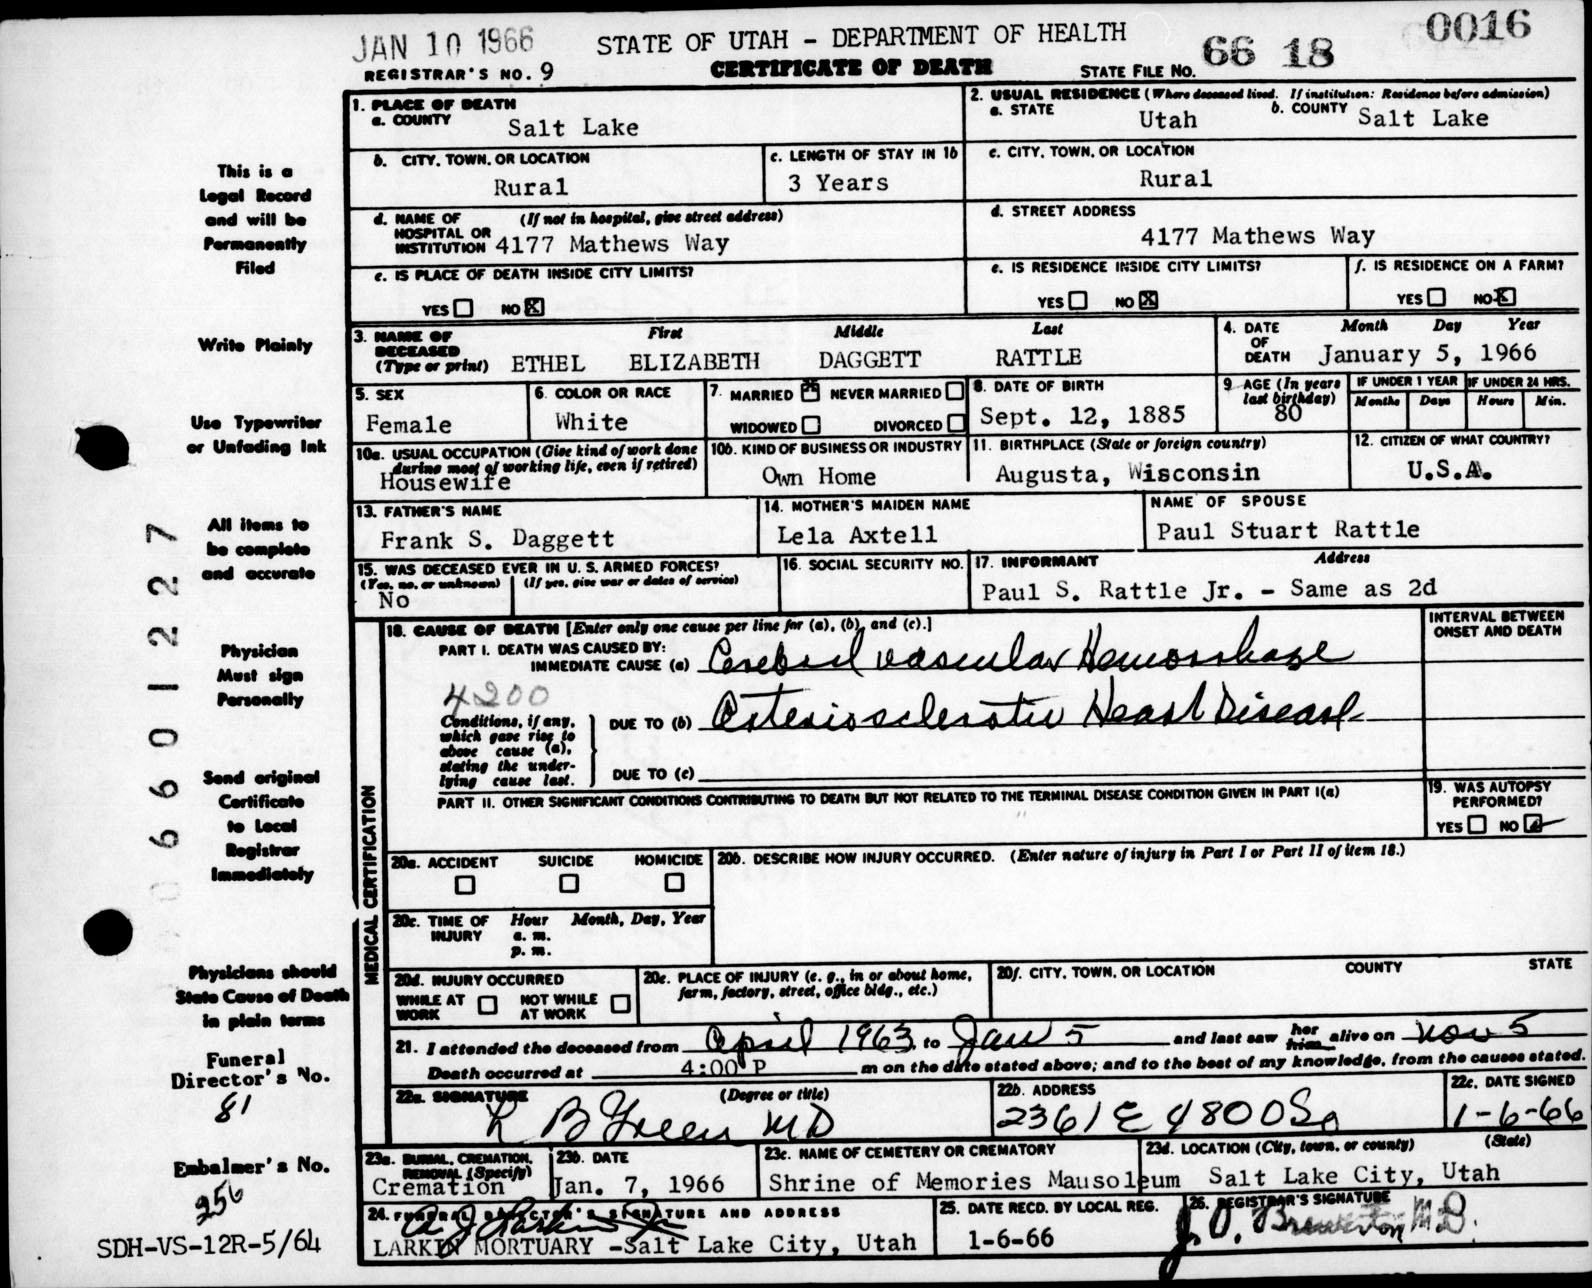 JAN 10 1966
STATE OF UTAH - DEPARTMENT OF HEALTH
0016
REGISTRAR'S NO. 9
CERTIFICATE OF DEATH
STATE FILE NO. 66 18
1. PLACE OF DEATH
a. COUNTY Salt Lake
2. USUAL RESIDENCE (Where deceased lived. If institution: Residence before admission)
a. STATE Utah b. COUNTY Salt Lake
b. CITY, TOWN, OR LOCATION
Rural
c. LENGTH OF STAY IN 1b
3 Years
c. CITY, TOWN, OR LOCATION
Rural
d. NAME OF (If not in hospital, give street address)
HOSPITAL OR
INSTITUTION 4177 Mathews Way
d. STREET ADDRESS
4177 Mathews Way
e. IS PLACE OF DEATH INSIDE CITY LIMITS?
YES NO X
e. IS RESIDENCE INSIDE CITY LIMITS?
YES NO X
f. IS RESIDENCE ON A FARM?
YES NO X
3. NAME OF First Middle Last
DECEASED
(Type or print) ETHEL ELIZABETH DAGGETT RATTLE
4. DATE Month Day Year
OF
DEATH January 5, 1966
5. SEX
Female
6. COLOR OR RACE
White
7. MARRIED X NEVER MARRIED
WIDOWED DIVORCED
8. DATE OF BIRTH
Sept. 12, 1885
9. AGE (In years
last birthday)
80
IF UNDER 1 YEAR
Months Days
IF UNDER 24 HRS.
Hours Min.
10a. USUAL OCCUPATION (Give kind of work done
during most of working life, even if retired)
Housewife
10b. KIND OF BUSINESS OR INDUSTRY
Own Home
11. BIRTHPLACE (State or foreign country)
Augusta, Wisconsin
12. CITIZEN OF WHAT COUNTRY?
U.S.A.
13. FATHER'S NAME
Frank S. Daggett
14. MOTHER'S MAIDEN NAME
Lela Axtell
NAME OF SPOUSE
Paul Stuart Rattle
15. WAS DECEASED EVER IN U. S. ARMED FORCES?
(Yes, no, or unknown) (If yes, give war or dates of service)
No
16. SOCIAL SECURITY NO.
17. INFORMANT Address
Paul S. Rattle Jr. - Same as 2d
MEDICAL CERTIFICATION
18. CAUSE OF DEATH [Enter only one cause per line for (a), (b), and (c).]
INTERVAL BETWEEN
ONSET AND DEATH
PART I. DEATH WAS CAUSED BY:
IMMEDIATE CAUSE (a) Cerebral vascular Hemorrhage
4200
Conditions, if any,
which gave rise to
above cause (a),
stating the under-
lying cause last.
DUE TO (b) Arteriosclerotic Heart Disease
DUE TO (c)
PART II. OTHER SIGNIFICANT CONDITIONS CONTRIBUTING TO DEATH BUT NOT RELATED TO THE TERMINAL DISEASE CONDITION GIVEN IN PART I(a)
19. WAS AUTOPSY
PERFORMED?
YES NO
20a. ACCIDENT SUICIDE HOMICIDE
20b. DESCRIBE HOW INJURY OCCURRED. (Enter nature of injury in Part I or Part II of item 18.)
20c. TIME OF Hour Month, Day, Year
INJURY a. m.
p. m.
20d. INJURY OCCURRED
WHILE AT NOT WHILE
WORK AT WORK
20e. PLACE OF INJURY (e. g., in or about home,
farm, factory, street, office bldg., etc.)
20f. CITY, TOWN, OR LOCATION COUNTY STATE
21. I attended the deceased from April 1963 to Jan 5 and last saw her him alive on Nov 5
Death occurred at 4:00 P m on the date stated above; and to the best of my knowledge, from the causes stated.
22a. SIGNATURE (Degree or title)
L B Green MD
22b. ADDRESS
2361 E 4800 So
22c. DATE SIGNED
1-6-66
23a. BURIAL, CREMATION,
REMOVAL (Specify)
Cremation
23b. DATE
Jan. 7, 1966
23c. NAME OF CEMETERY OR CREMATORY
Shrine of Memories Mausoleum
23d. LOCATION (City, town, or county) (State)
Salt Lake City, Utah
24. FUNERAL DIRECTOR'S SIGNATURE AND ADDRESS
LARKIN MORTUARY -Salt Lake City, Utah
25. DATE RECD. BY LOCAL REG.
1-6-66
26. REGISTRAR'S SIGNATURE
This is a
Legal Record
and will be
Permanently
Filed
Write Plainly
Use Typewriter
or Unfading Ink
All items to
be complete
and accurate
Physician
Must sign
Personally
Send original
Certificate
to Local
Registrar
Immediately
Physicians should
State Cause of Death
in plain terms
Funeral
Director's No.
81
Embalmer's No.
256
SDH-VS-12R-5/64
0660 1227